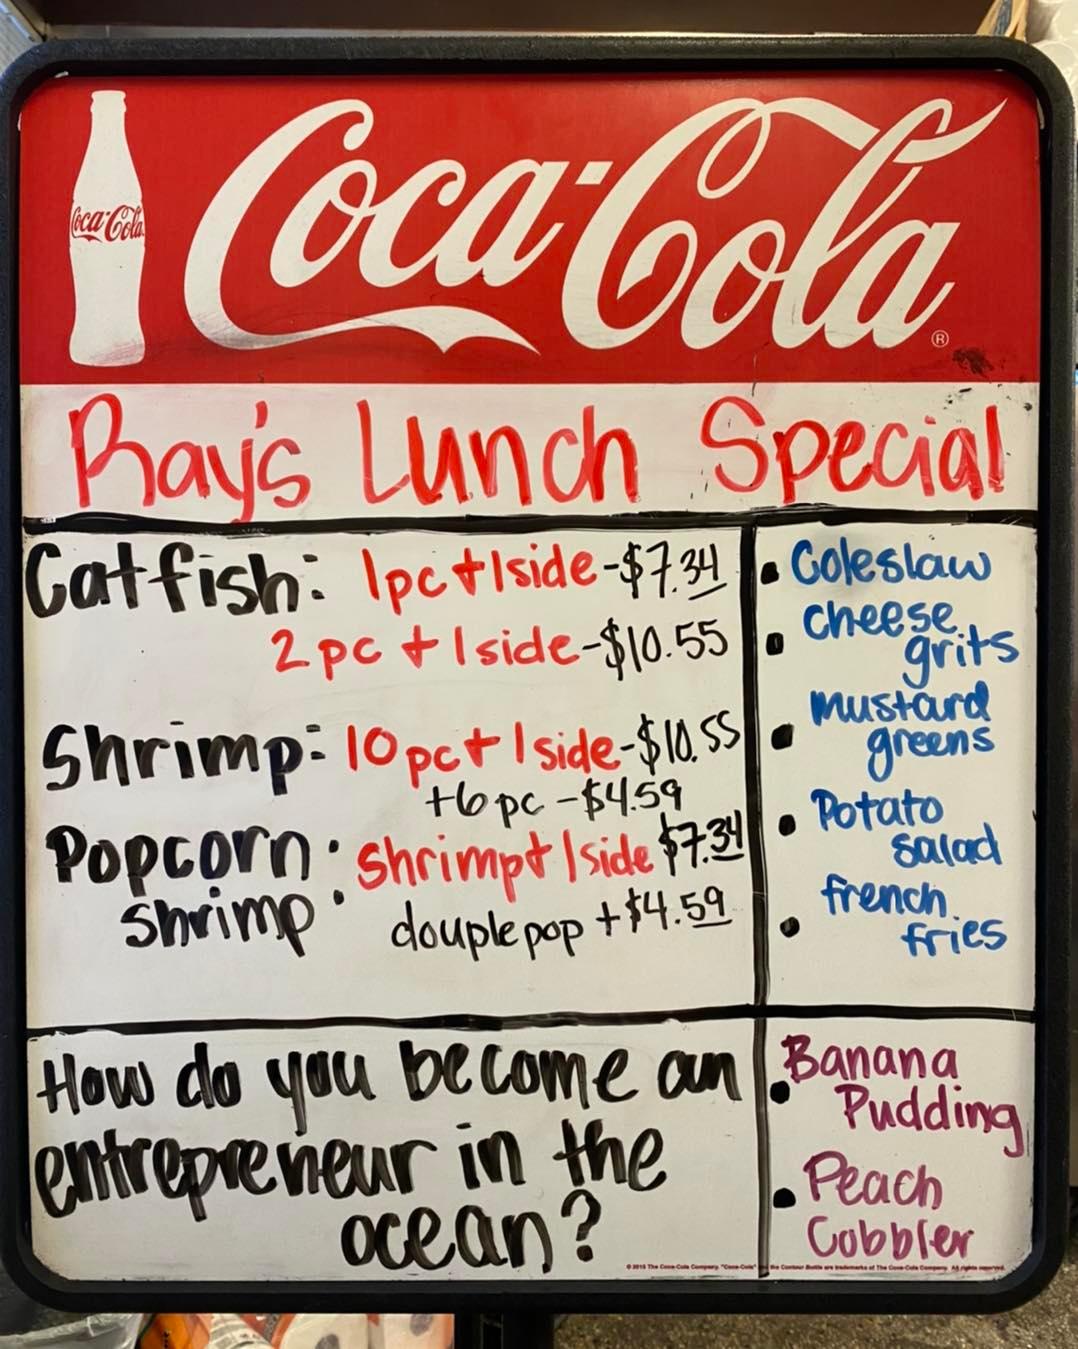 Coca-Cola
Coca-Cola®
Ray's Lunch Special
Catfish: 1pc + 1side - $7.34
2 pc + 1 side - $10.55
Shrimp: 10 pc + 1 side - $10.55
+6 pc - $4.59
Popcorn shrimp: shrimp + 1 side $7.34
douple pop + $4.59
• Coleslaw
• cheese
grits
• mustard
greens
• Potato
salad
• french
fries
How do you become an
entrepreneur in the
ocean?
• Banana
Pudding
• Peach
Cobbler
© 2015 The Coca-Cola Company. "Coca-Cola" the Contour Bottle are trademarks of The Coca-Cola Company. All rights reserved.